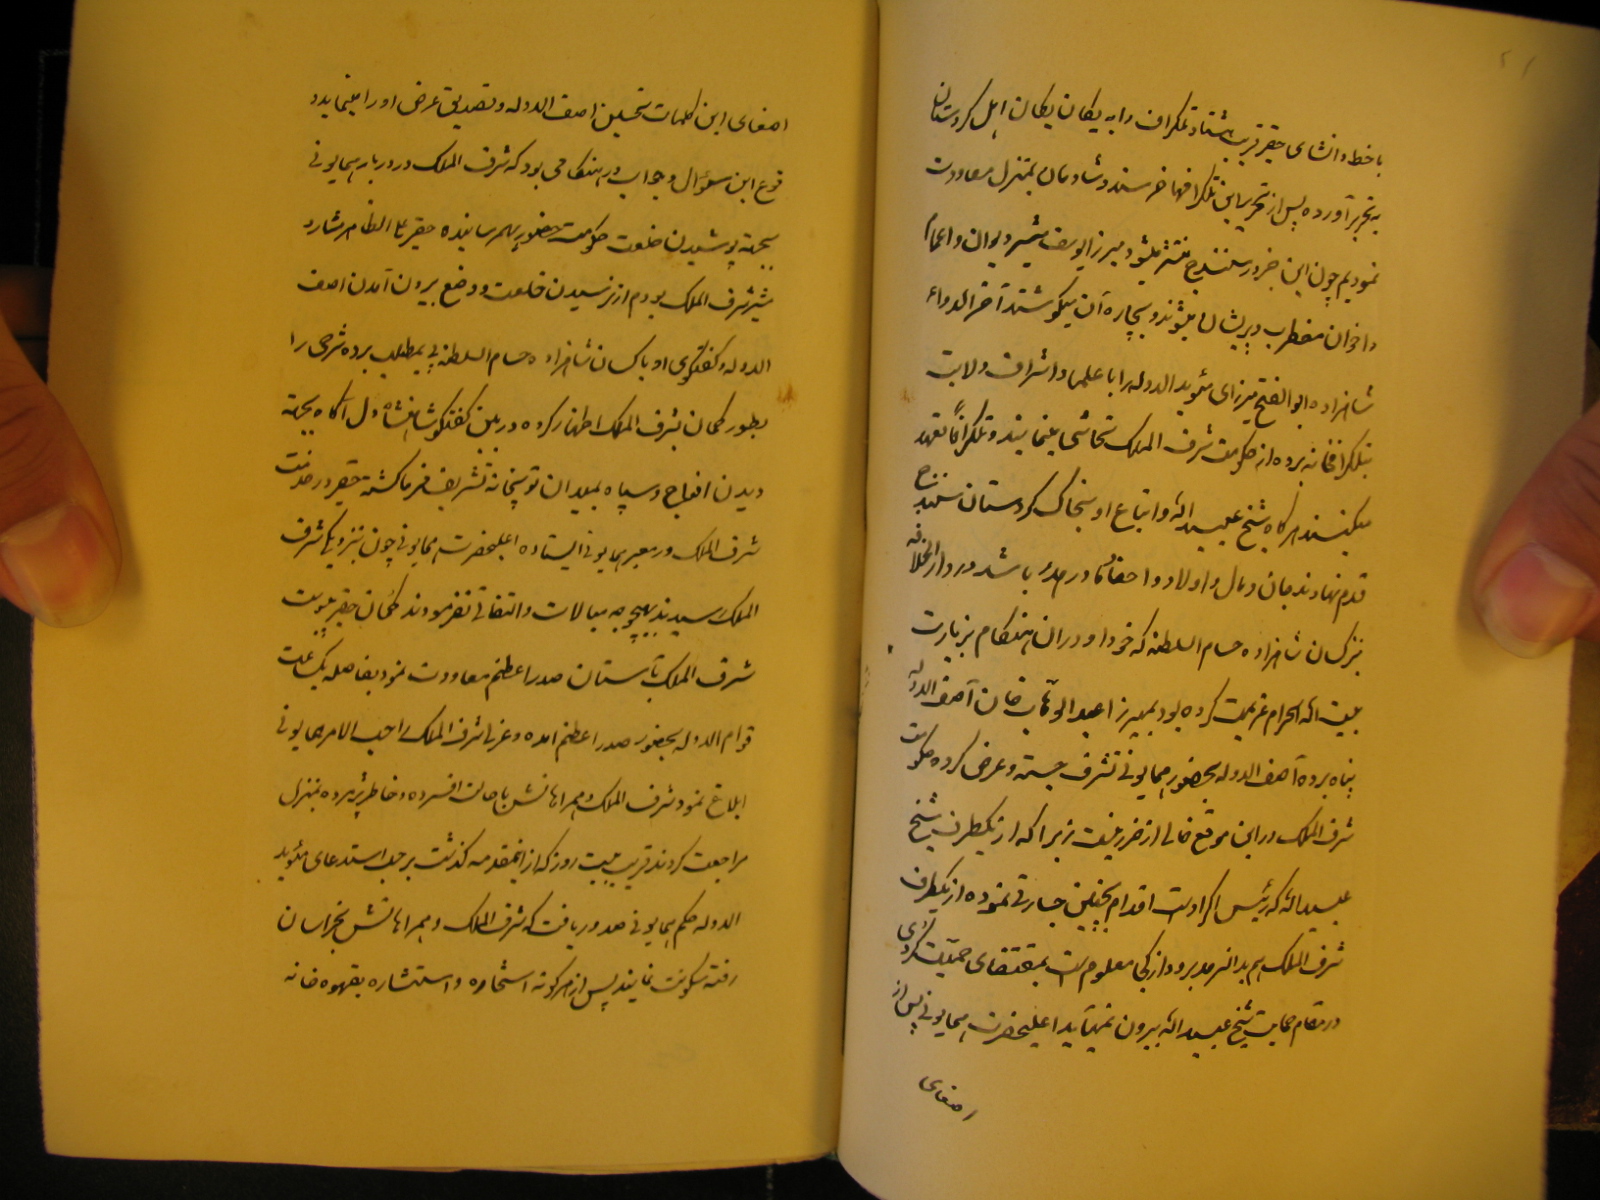 با خط و انشای حقیر قریب هشتاد تلگراف را به یکان یکان اهل کردستان
به تحریر آورده پس از تحریر این تلگرافها خرسند و شادمان بمنزل معاودت
نمودیم چون این خبر در سنندج منتشر میشود میرزا یوسف مشیر دیوان و اعمام
و اخوان مضطرب و پریشان میشوند و بچاره آن میکوشند آخر الدواء
شاهزاده ابوالفتح میرزای مؤید الدوله را با علما و اشراف ولایت
بتلگرافخانه برده از حکومت شرف الملک تحاشی مینمایند و تلگرافاً تعهد
میکنند هرگاه شیخ عبیدالله و اتباع او بخاک کردستان سنندج
قدم نهادند جان و مال و اولاد و احفاد ما در هدر باشد و در دار الخلافه
بزرگان شاهزاده حسام السلطنه که خود او در ان هنگام بزیارت
بیت الله الحرام عزیمت کرده بود بمیرزا عبدالوهاب خان آصف الدوله
پناه برده آصف الدوله بحضور همایونی تشرف جسته و عرض کرده حکومت
شرف الملک در این موقع خالی از ضرر نیست زیرا که از یکطرف شیخ
عبیدالله که رئیس اکراد است اقدام بچنین جسارتی نموده از یکطرف
شرف الملک هم بدانسر حد برود از کجا معلوم است بمقتضای حمیت کردی
در مقام حمایت شیخ عبیدالله بیرون نمیآید اعلیحضرت همایونی پس از
اصغای
اصغای این کلمات تحسین آصف الدوله و تصدیق عرض او را مینماید و
قوع این سؤال و جواب در هنگامی بود که شرف الملک در دربار همایونی
بجهة پوشیدن خلعت حکومت حضور بهمرسانیده حقیر علی الظاهر مشار و
مشیر شرف الملک بودم از نرسیدن خلعت و وضع بیرون آمدن آصف
الدوله و گفتگوی او با کسان شاهزاده حسام السلطنه پی بمطلب برده شرحی را
بطور گمان بشرف الملک اظهار کرده در بین گفتگو شاهنشاه دل آگاه بجهة
دیدن افواج و سپاه بمیدان توپخانه تشریف فرما گشته حقیر در خدمت
شرف الملک در معبر همایونی ایستاده اعلیحضرت همایونی چون بنزدیک شرف
الملک رسیدند بهیچوجه مبالات و التفاتی نفرمودند گمان حقیر بثبوت
شرف الملک بآستان صدر اعظم معاودت نمود بفاصله یکساعت
قوام الدوله بحضور صدر اعظم آمده و عزل شرف الملک را حسب الامر همایونی
ابلاغ نمود شرف الملک و همراهانش با حالت افسرده و خاطر پژمرده بمنزل
مراجعت کردند قریب بیست روز که از اینمقدمه گذشت بر حسب استدعای مؤید
الدوله حکم همایونی صدور یافت که شرف الملک و همراهانش بخراسان
رفته سکونت نمایند پس از هرگونه استخاره و استشاره بقهوه خانه